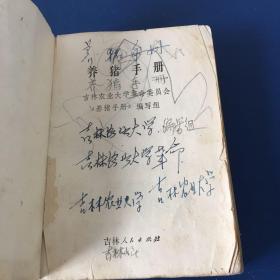 养猪手册
养猪手册
养猪手册
吉林农业大学革命委员会
《养猪手册》编写组
吉林农业大学 编写组
吉林农业大学革命
吉林农业大学
吉林农业大学
吉林人民出版社